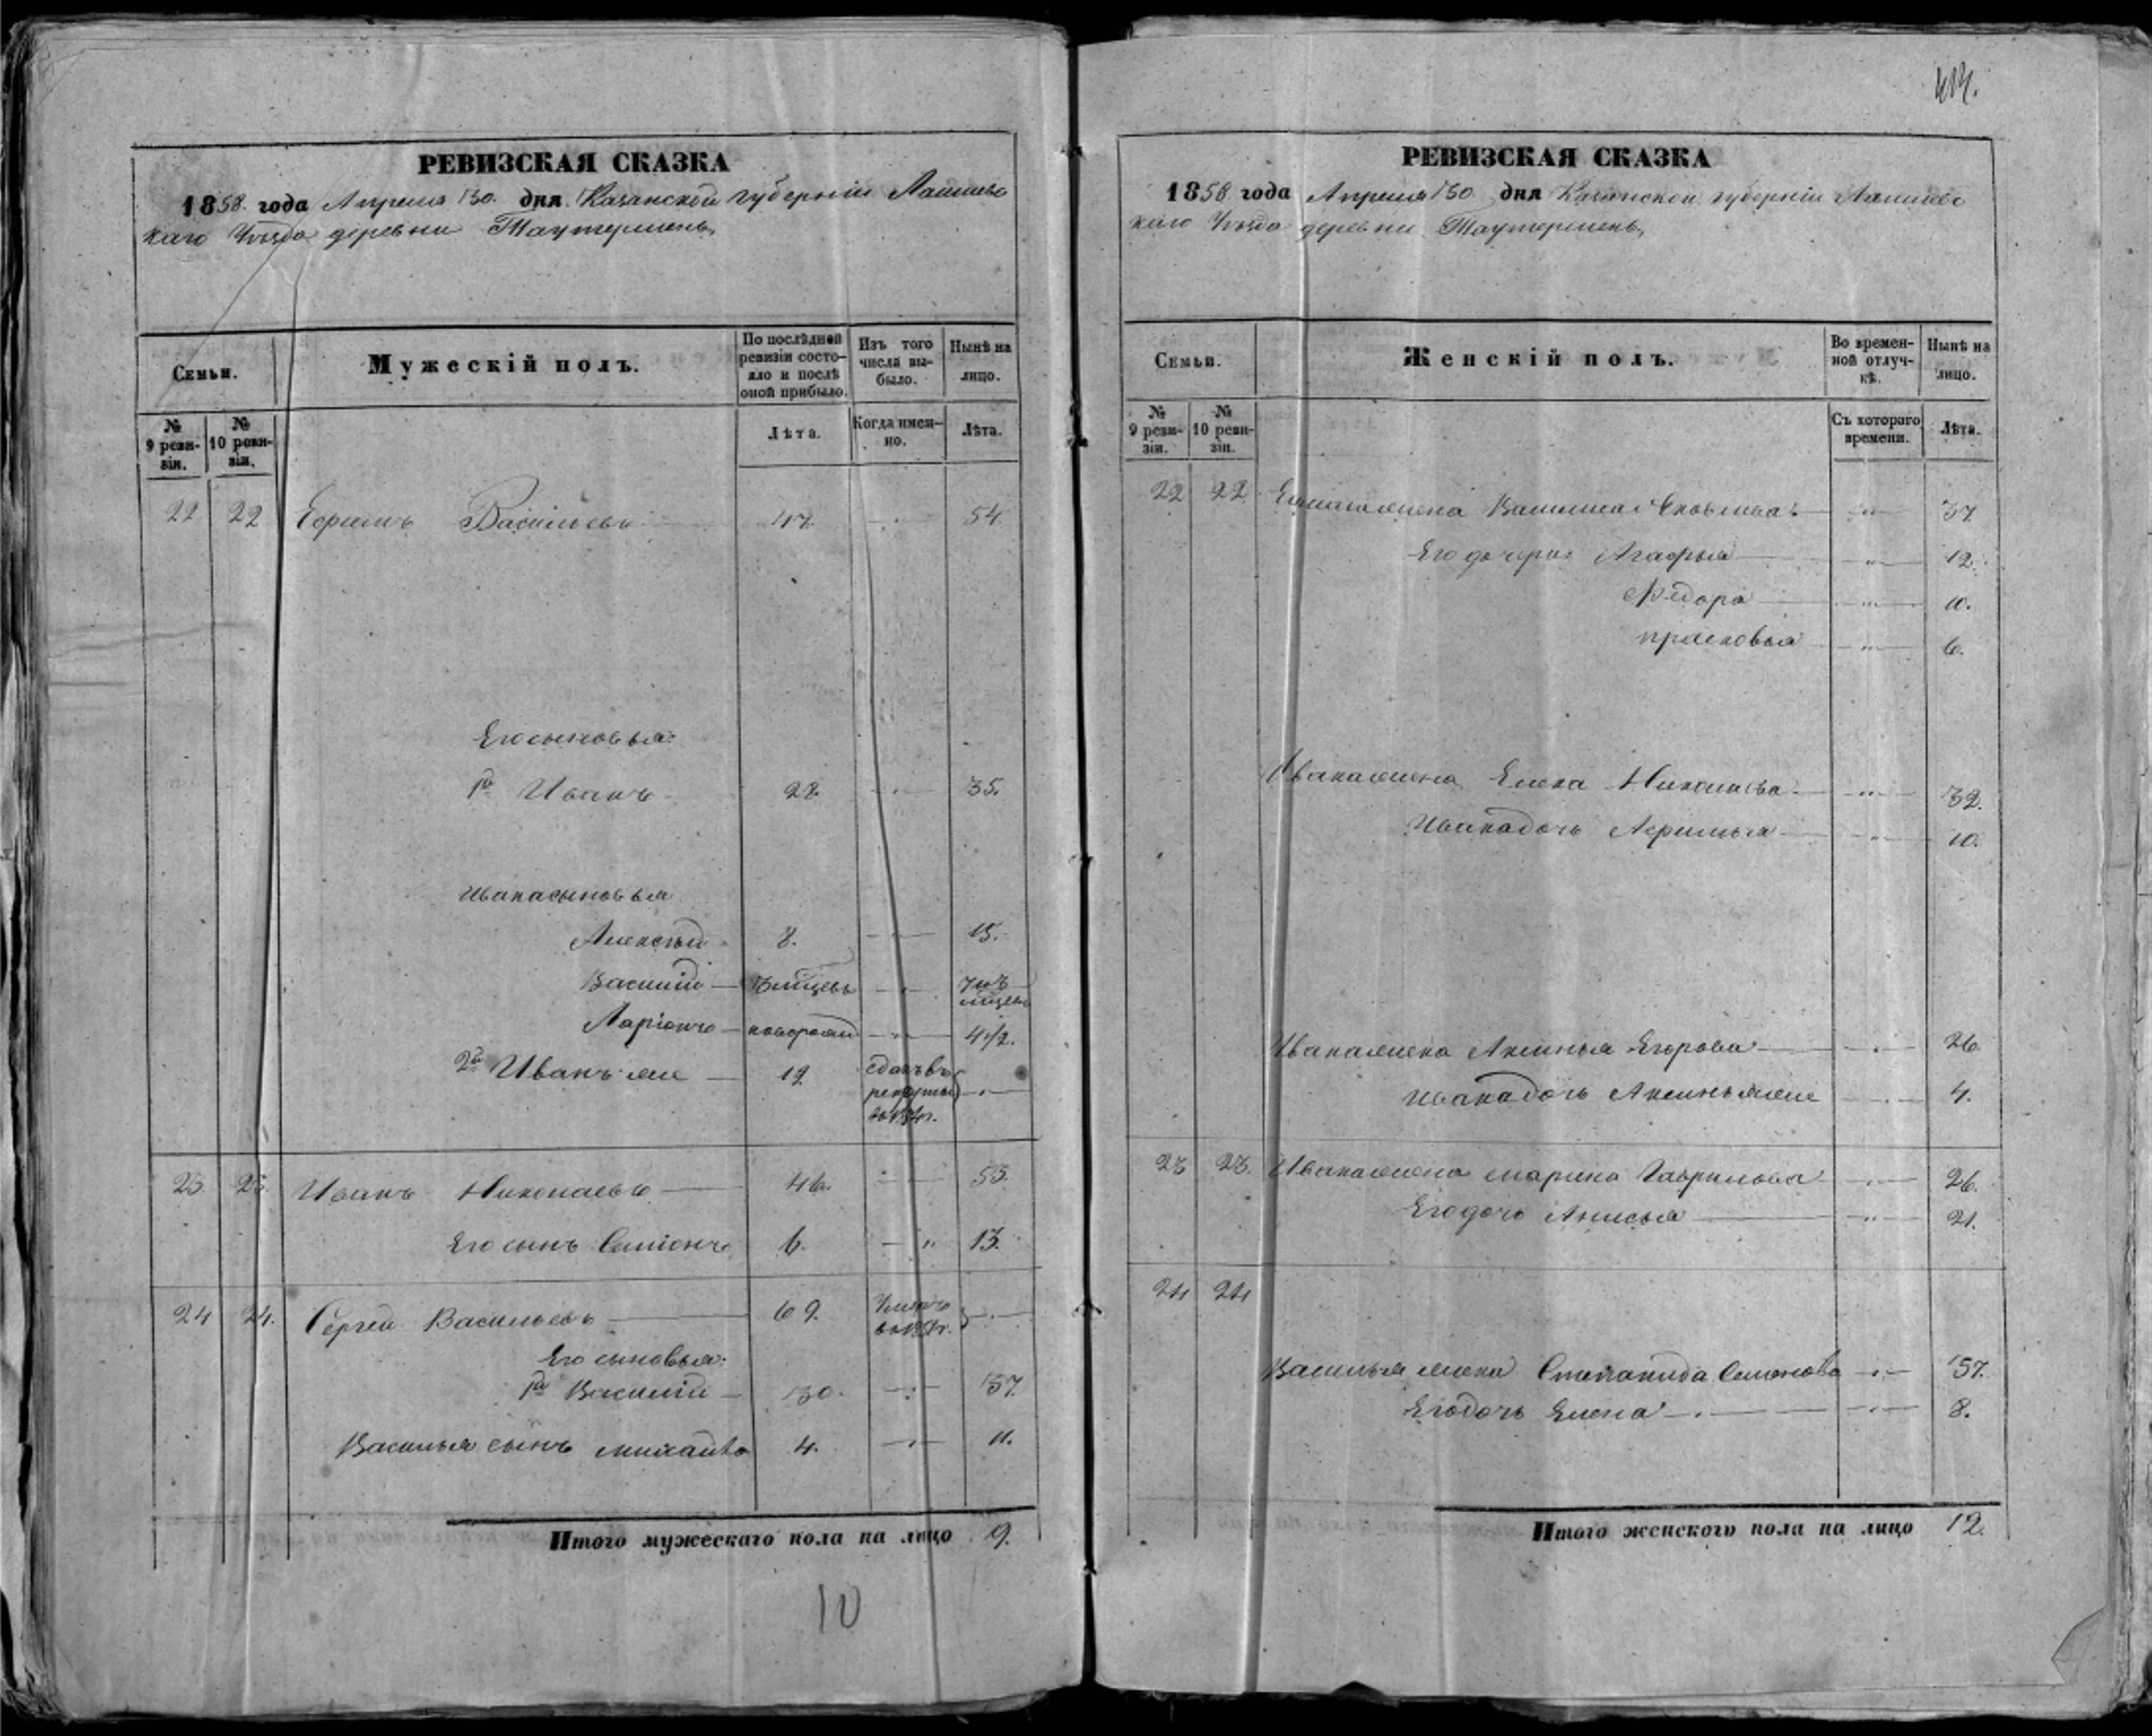 РЕВИЗСКАЯ СКАЗКА
1858 года Апреля 30 дня Казанской губерніи Лаишевс
каго Уѣзда деревни Таутермень
Семьи.
Мужескій полъ.
По послѣдней ревизіи состояло и послѣ оной прибыло.
Изъ того числа выбыло.
Нынѣ на лицо.
№ 9 ревизіи.
№ 10 ревизіи.
Лѣта.
Когда именно.
Лѣта.
22 22 Ефимъ Васильевъ 47. 54
Его сыновья:
1й Иванъ 28. 35.
Ивана сыновья
Алексѣй 8. 15.
Василій
Ларіонъ новорожд 4 1/2.
2й Иванъ же 19 сданъ въ рекруты
23 23. Иванъ Николаевъ 46. 53.
Его сынъ Семіонъ 6. 13.
24 24. Сергей Васильевъ 69.
Его сыновья:
1й Василій 30. 37
Василья сынъ Михайло 4. 11.
Итого мужескаго пола на лицо 9.
10
РЕВИЗСКАЯ СКАЗКА
1858 года Апреля 30 дня Казанской губерніи Лаишевс
каго Уѣзда деревни Таутермень
Семьи.
Женскій полъ.
Во временной отлучкѣ.
Нынѣ на лицо.
№ 9 ревизіи.
№ 10 ревизіи.
Съ котораго времени.
Лѣта.
22 22 37
Его дочери: Агафья 12.
Ѳедора 10.
Прасковья 6.
Ивана жена Елена Николаева 32.
Ивана дочь 10.
Ивана жена Аксинья Егорова 26
Ивана дочь Аксинья же 4.
23 23. Ивана жена Марина Гаврилова 26.
Его дочь Анисья 21.
24 24
Василья жена Степанида Семенова 37.
Его дочь Елена 8.
Итого женского пола на лицо 12.